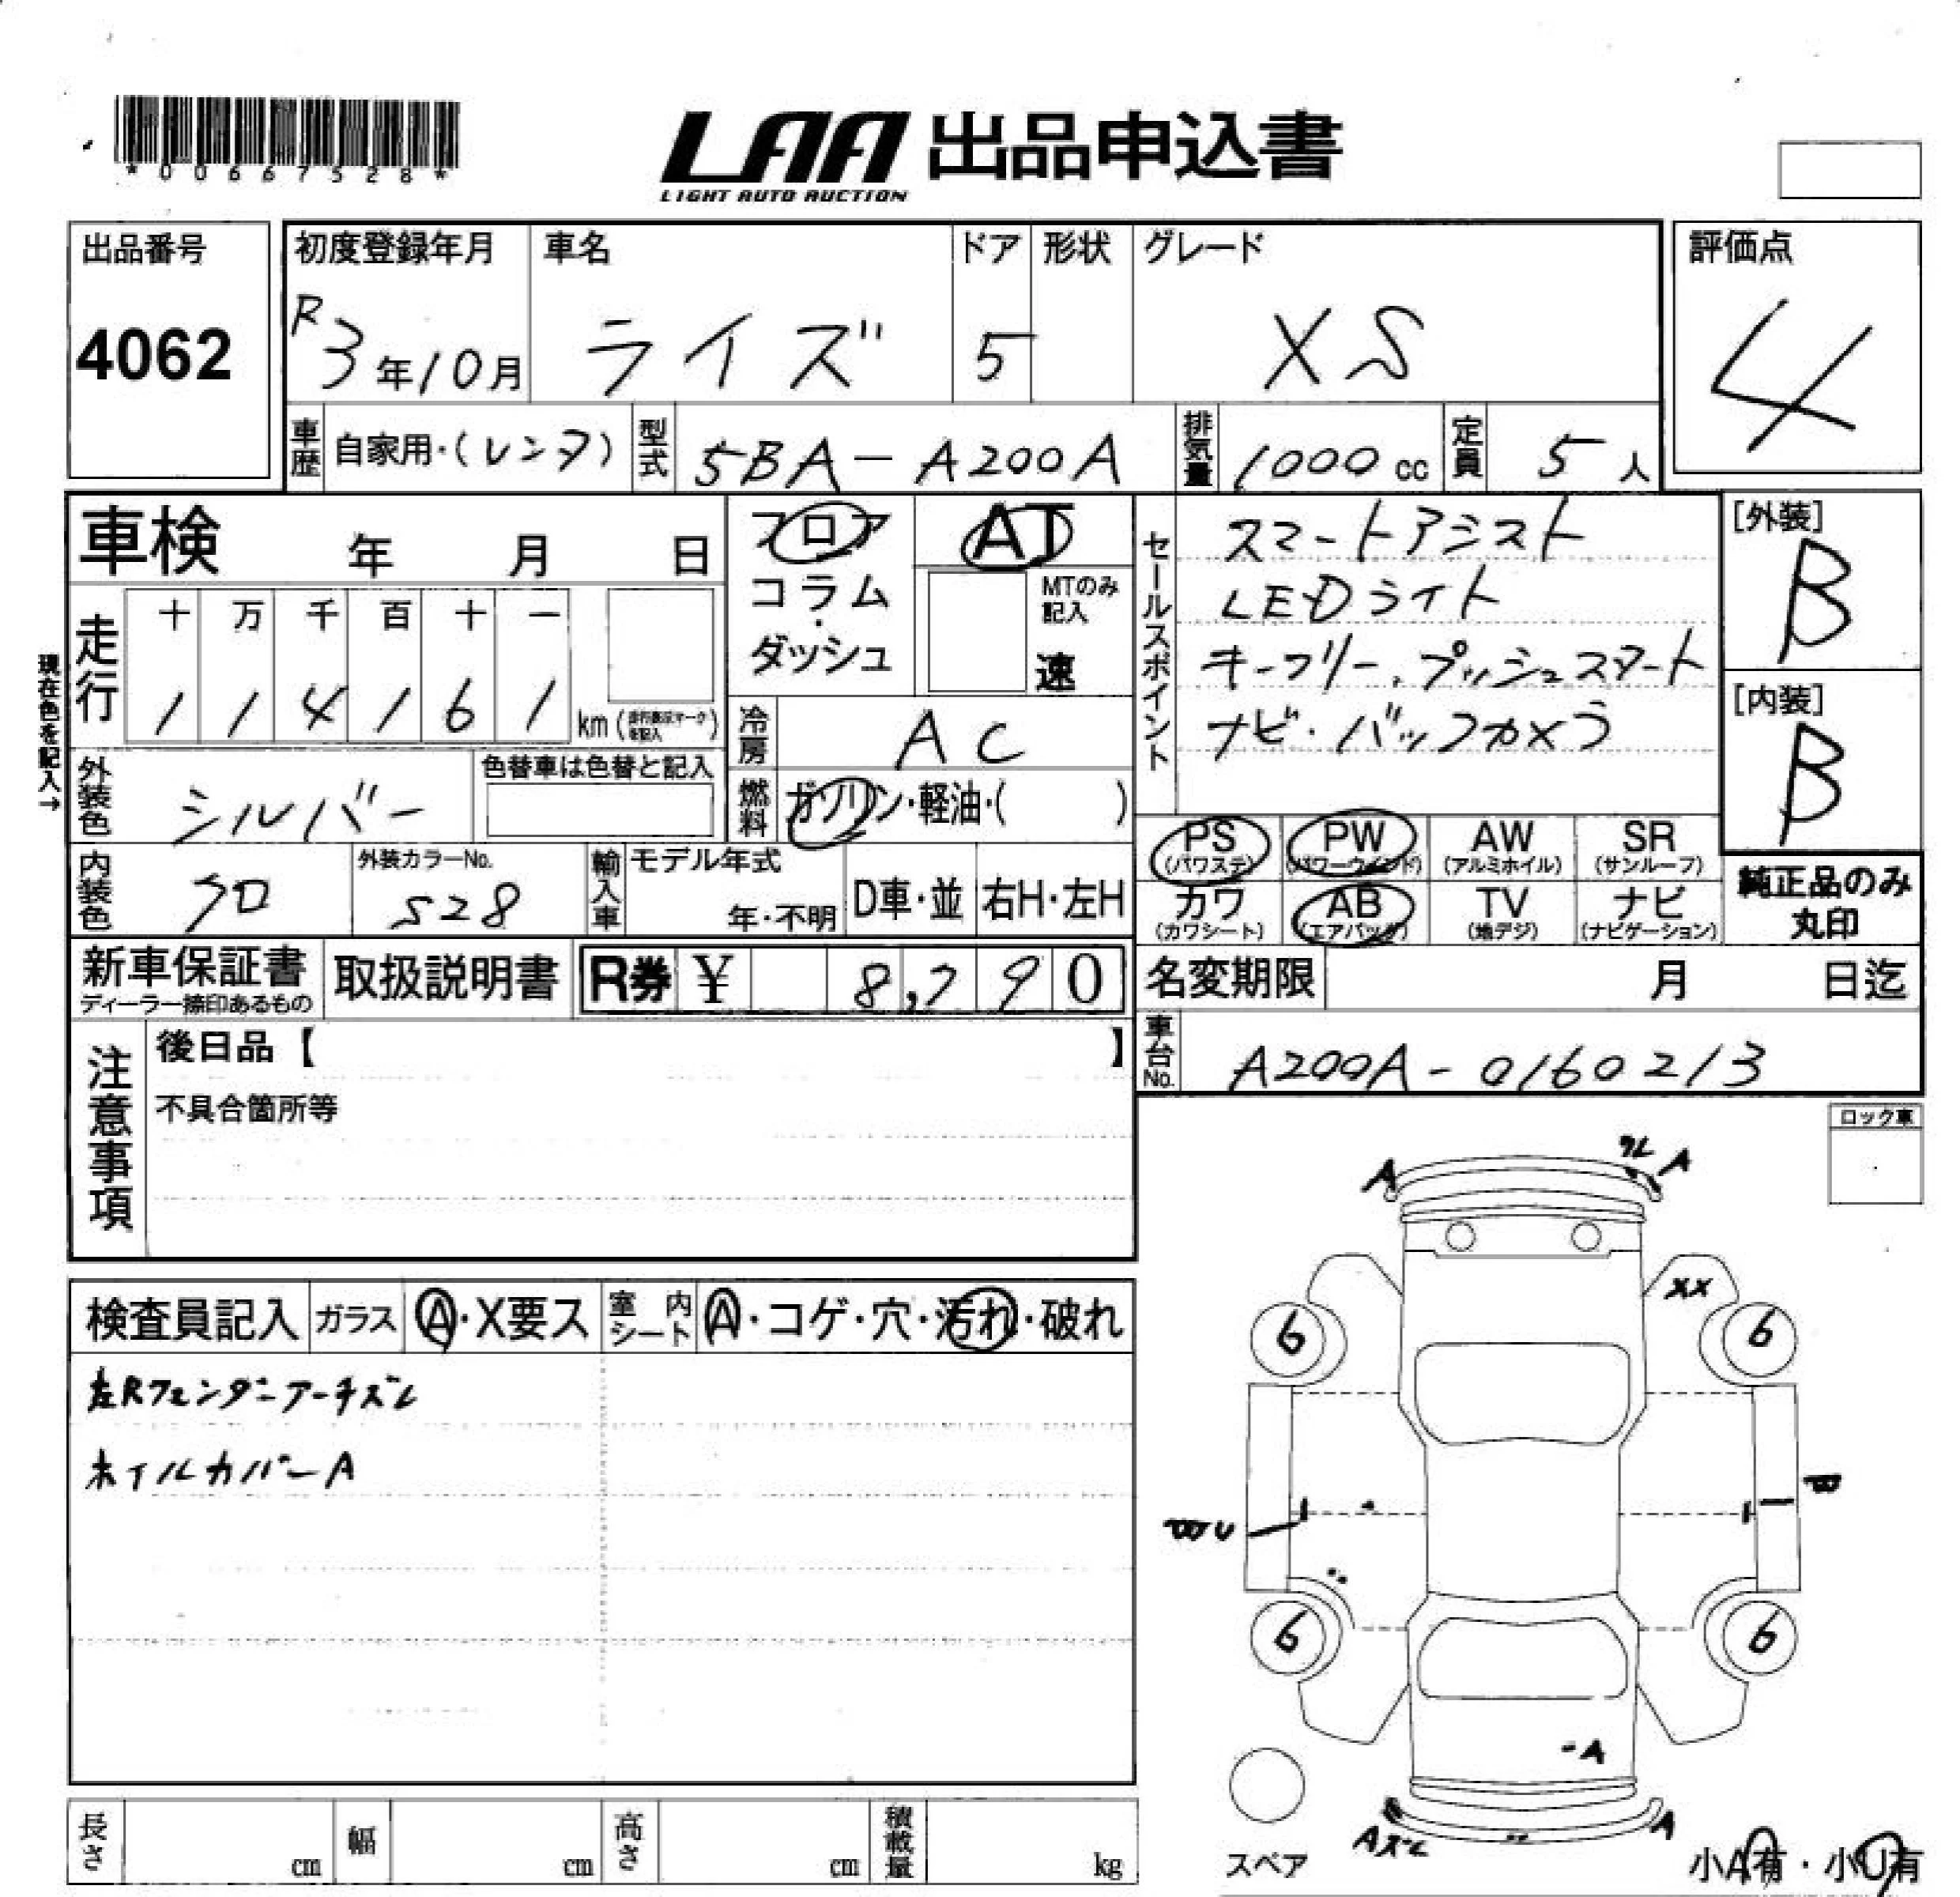 *00667528*
LAA 出品申込書
LIGHT AUTO AUCTION
出品番号
4062
初度登録年月
R3年10月
車名
ライズ
ドア
5
形状
グレード
XS
評価点
4
車歴
自家用・(レンタ)
型式
5BA-A200A
排気量
1000 cc
定員
5人
車検 年 月 日
フロア
コラム
・
ダッシュ
AT
MTのみ
記入
速
セールスポイント
スマートアシスト
LEDライト
キーフリー、プッシュスタート
ナビ・バックカメラ
[外装]
B
[内装]
B
現在色を記入→
走行
十 万 千 百 十 一
1 1 4 1 6 1 km
冷房
AC
燃料
ガソリン・軽油・( )
外装色
シルバー
色替車は色替と記入
内装色
クロ
外装カラーNo.
S28
輸入車
モデル年式
年・不明
D車・並
右H・左H
PS
(パワステ)
PW
(パワーウインド)
AW
(アルミホイル)
SR
(サンルーフ)
カワ
(カワシート)
AB
(エアバック)
TV
(地デジ)
ナビ
(ナビゲーション)
純正品のみ
丸印
新車保証書
ディーラー捺印あるもの
取扱説明書
R券 ¥ 8,790
名変期限 月 日迄
車台No.
A200A-0160213
注意事項
後日品【 】
不具合箇所等
ロック車
検査員記入
ガラス
A・X要ス
室内シート
A・コゲ・穴・汚れ・破れ
左Rフェンダーアーチズレ
ホイルカバーA
A
ワレ A
XX
6
6
B
BU
6
6
-A
Aズレ
A
スペア
小A有・小U有
長さ cm
幅 cm
高さ cm
積載量 kg